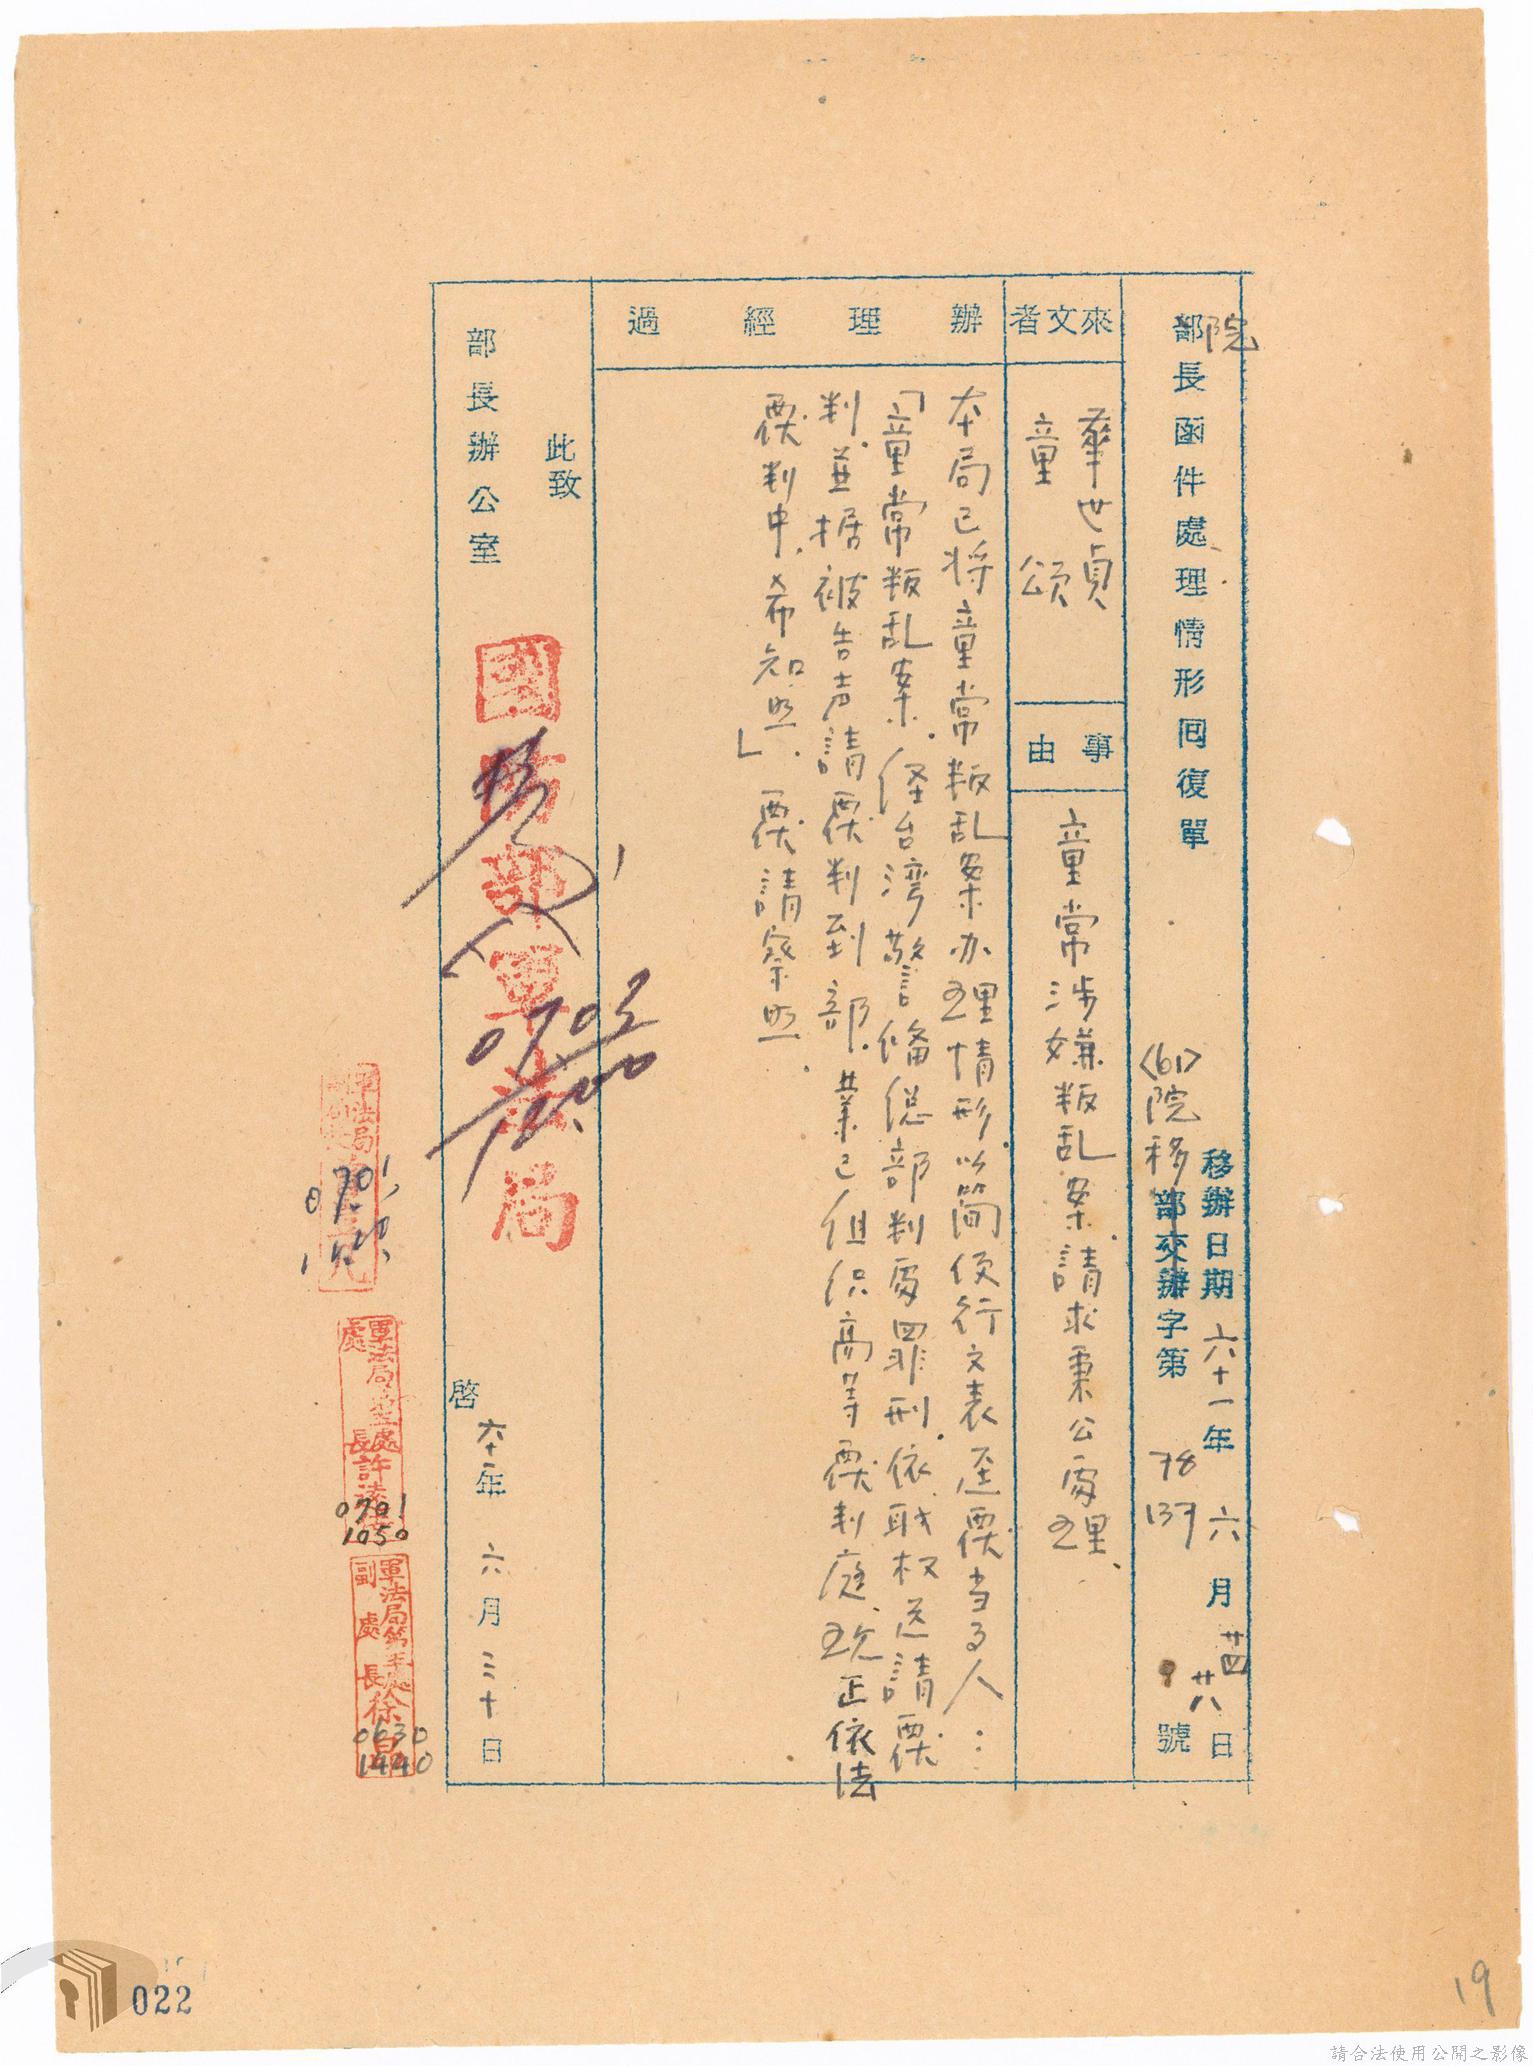 院
部長函件處理情形囘復單
移辦日期 六十一年 六月 廿四 廿八日
<61>院移部交辦字第 78 137 號
來文者
華世貞
童 頌
事由
童常涉嫌叛乱案.請求秉公處理.
辦理經過
本局已将童常叛乱案办理情形.以简便行文表逕覆当事人：
「童常叛乱案.経台湾警備総部判處罪刑.依职权送請覆
判.並据被告声請覆判到部.業已组织高等覆判庭.現正依法
覆判中.希知照.」覆請察照.
此致
部長辦公室
國防部軍法局
0702
1200
啓
六十一年 六月 三十日
軍法局
0701
軍法局 處處長許
0701
1050
軍法局第 處副處長徐
0630
1440
022
19
請合法使用公開之影像